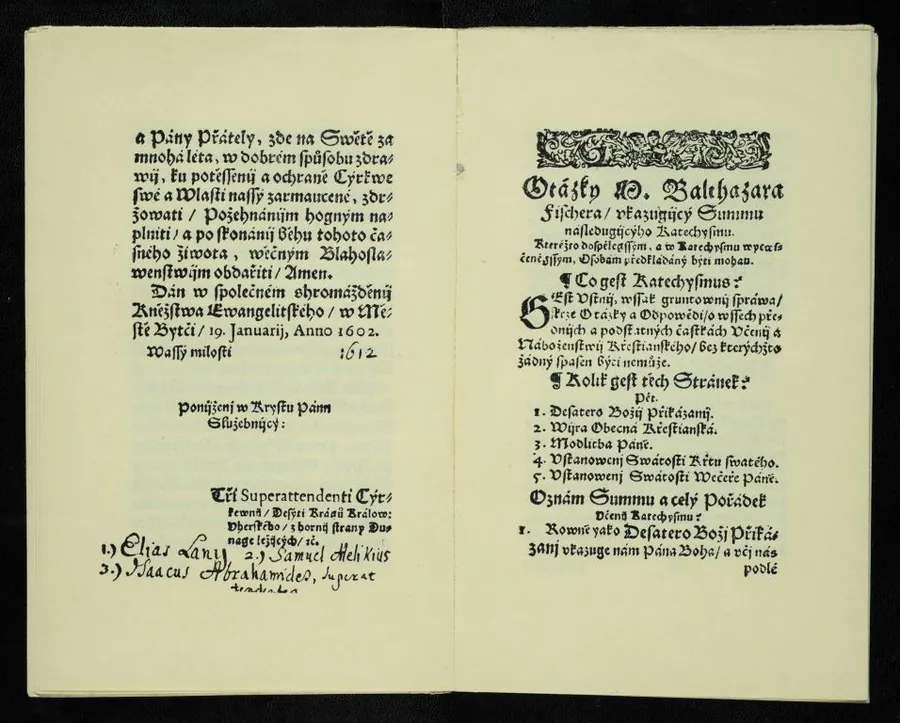 a Pány Přátely, zde na Swětě za
mnohá léta, w dobrém spůsobu zdra⸗
wij, ku potěssenij a ochraně Cýrkwe
swé a Wlasti nassý zarmaucené, zdr⸗
žowati / Požehnánijm hogným na⸗
plniti / a po skonánij běhu tohoto ča⸗
sného žiwota, wěčným Blahosla⸗
wenstwijm obdařiti / Amen.
Dán w společném shromážděnij
Kněžstwa Ewangelitského / w Mě⸗
stě Bytči / 19. Januarij, Anno 1602.
Wassý milosti 1612
Ponijženj w Krystu Pánu
Služebnijcý:
Tři Superattendenti Cýr⸗
kewnij / Desýti Krágů Králow:
Uherského / z hornij strany Du⸗
nage ležijcých / ꝛč.
1.) Elias Lany 2.) Samuel Melikius
3.) Isaacus Abrahamides, superat
tendentes
Otázky M. Balthazara
Fischera / vkazugijcý Summu
následugijcýho Katechysmu.
Kteréžto dospělegssým, a w Katechysmu wycwi⸗
čeněgssým, Osobám předkládány býti mohau.
¶ Co gest Katechysmus?
GEst Vstnij, wssak gruntownij spráwa /
skrze Otázky a Odpowědi / o wssech pře⸗
dnijch a podstatných částkách Včenij a
Náboženstwij Křestianského / bez kterýchžto
žádný spasen býti nemůže.
¶ Kolik gest těch Stránek?
Pět.
1. Desatero Božij Přikázanij.
2. Wijra Obecná Křestianská.
3. Modlitba Páně.
4. Vstanowenj Swátosti Křtu swatého.
5. Vstanowenj Swátosti Wečeře Páně.
Oznám Summu a celý Pořádek
Včenij Katechysmu?
1. Rowně yako Desatero Božj Přiká⸗
zanj vkazuge nám Pána Boha / a včj nás
podlé